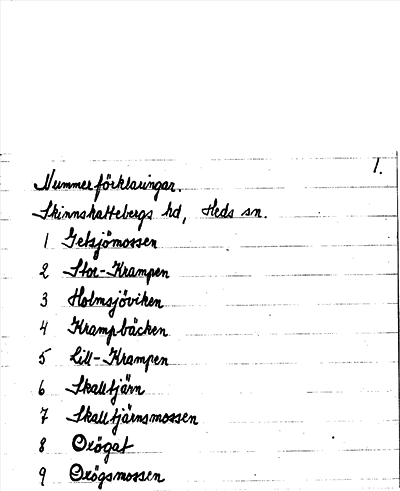 1.
Nummerförklaringar.
Skinnskattebergs hd, Heds sn.
1 Getsjömossen
2 Stor-Krampen
3 Holmsjöviken
4 Krampbäcken
5 Lill-Krampen
6 Skalltjärn
7 Skalltjärnsmossen
8 Oxögat
9 Oxögsmossen